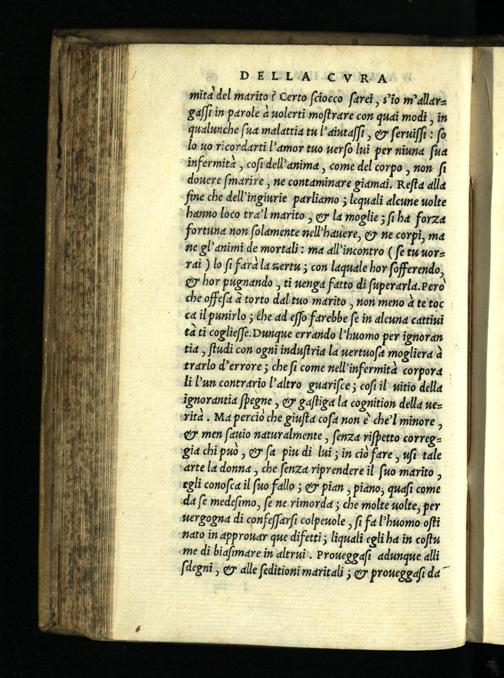 DELLA CVRA
mità del marito? Certo sciocco sarei, s'io m'allar=
gassi in parole à volerti mostrare con quai modi, in
qualunche sua malattia tu l'aiutassi, & seruissi: so
lo uo ricordarti l'amor tuo verso lui per niuna sua
infermità, cosi dell'anima, come del corpo, non si
douere smarire, ne contaminare giamai. Resta alla
fine che dell'ingiurie parliamo; lequali alcune uolte
hanno loco tra'l marito, & la moglie; si ha forza
fortuna non solamente nell'hauere, & ne corpi, ma
ne gl'animi de mortali: ma all'incontro (se tu uor=
rai) lo si farà la uertu; con laquale hor sofferendo,
& hor pugnando, ti uenga fatto di superarla. Però
che offesa à torto dal tuo marito, non meno à te toc
ca il punirlo; che ad esso farebbe se in alcuna cattiui
tà ti cogliesse. Dunque errando l'huomo per ignoran
tia, studi con ogni industria la uertuosa mogliera à
trarlo d'errore; che si come nell'infermità corpora
li l'un contrario l'altro guarisce; cosi il uitio della
ignorantia spegne, & gastiga la cognition della ue=
rità. Ma perciò che giusta cosa non è che'l minore,
& men sauio naturalmente, senza rispetto correg=
gia chi può, & sa piu di lui; in ciò fare, usi tale
arte la donna, che senza riprendere il suo marito,
egli conosca il suo fallo; & pian, piano, quasi come
da se medesimo, se ne rimorda; che molte uolte, per
uergogna di confessarsi colpeuole, si fa l'huomo osti
nato in approuar que difetti; liquali egli ha in costu
me di biasimare in altrui. Proueggasi adunque alli
sdegni, & alle seditioni maritali; & proueggasi da